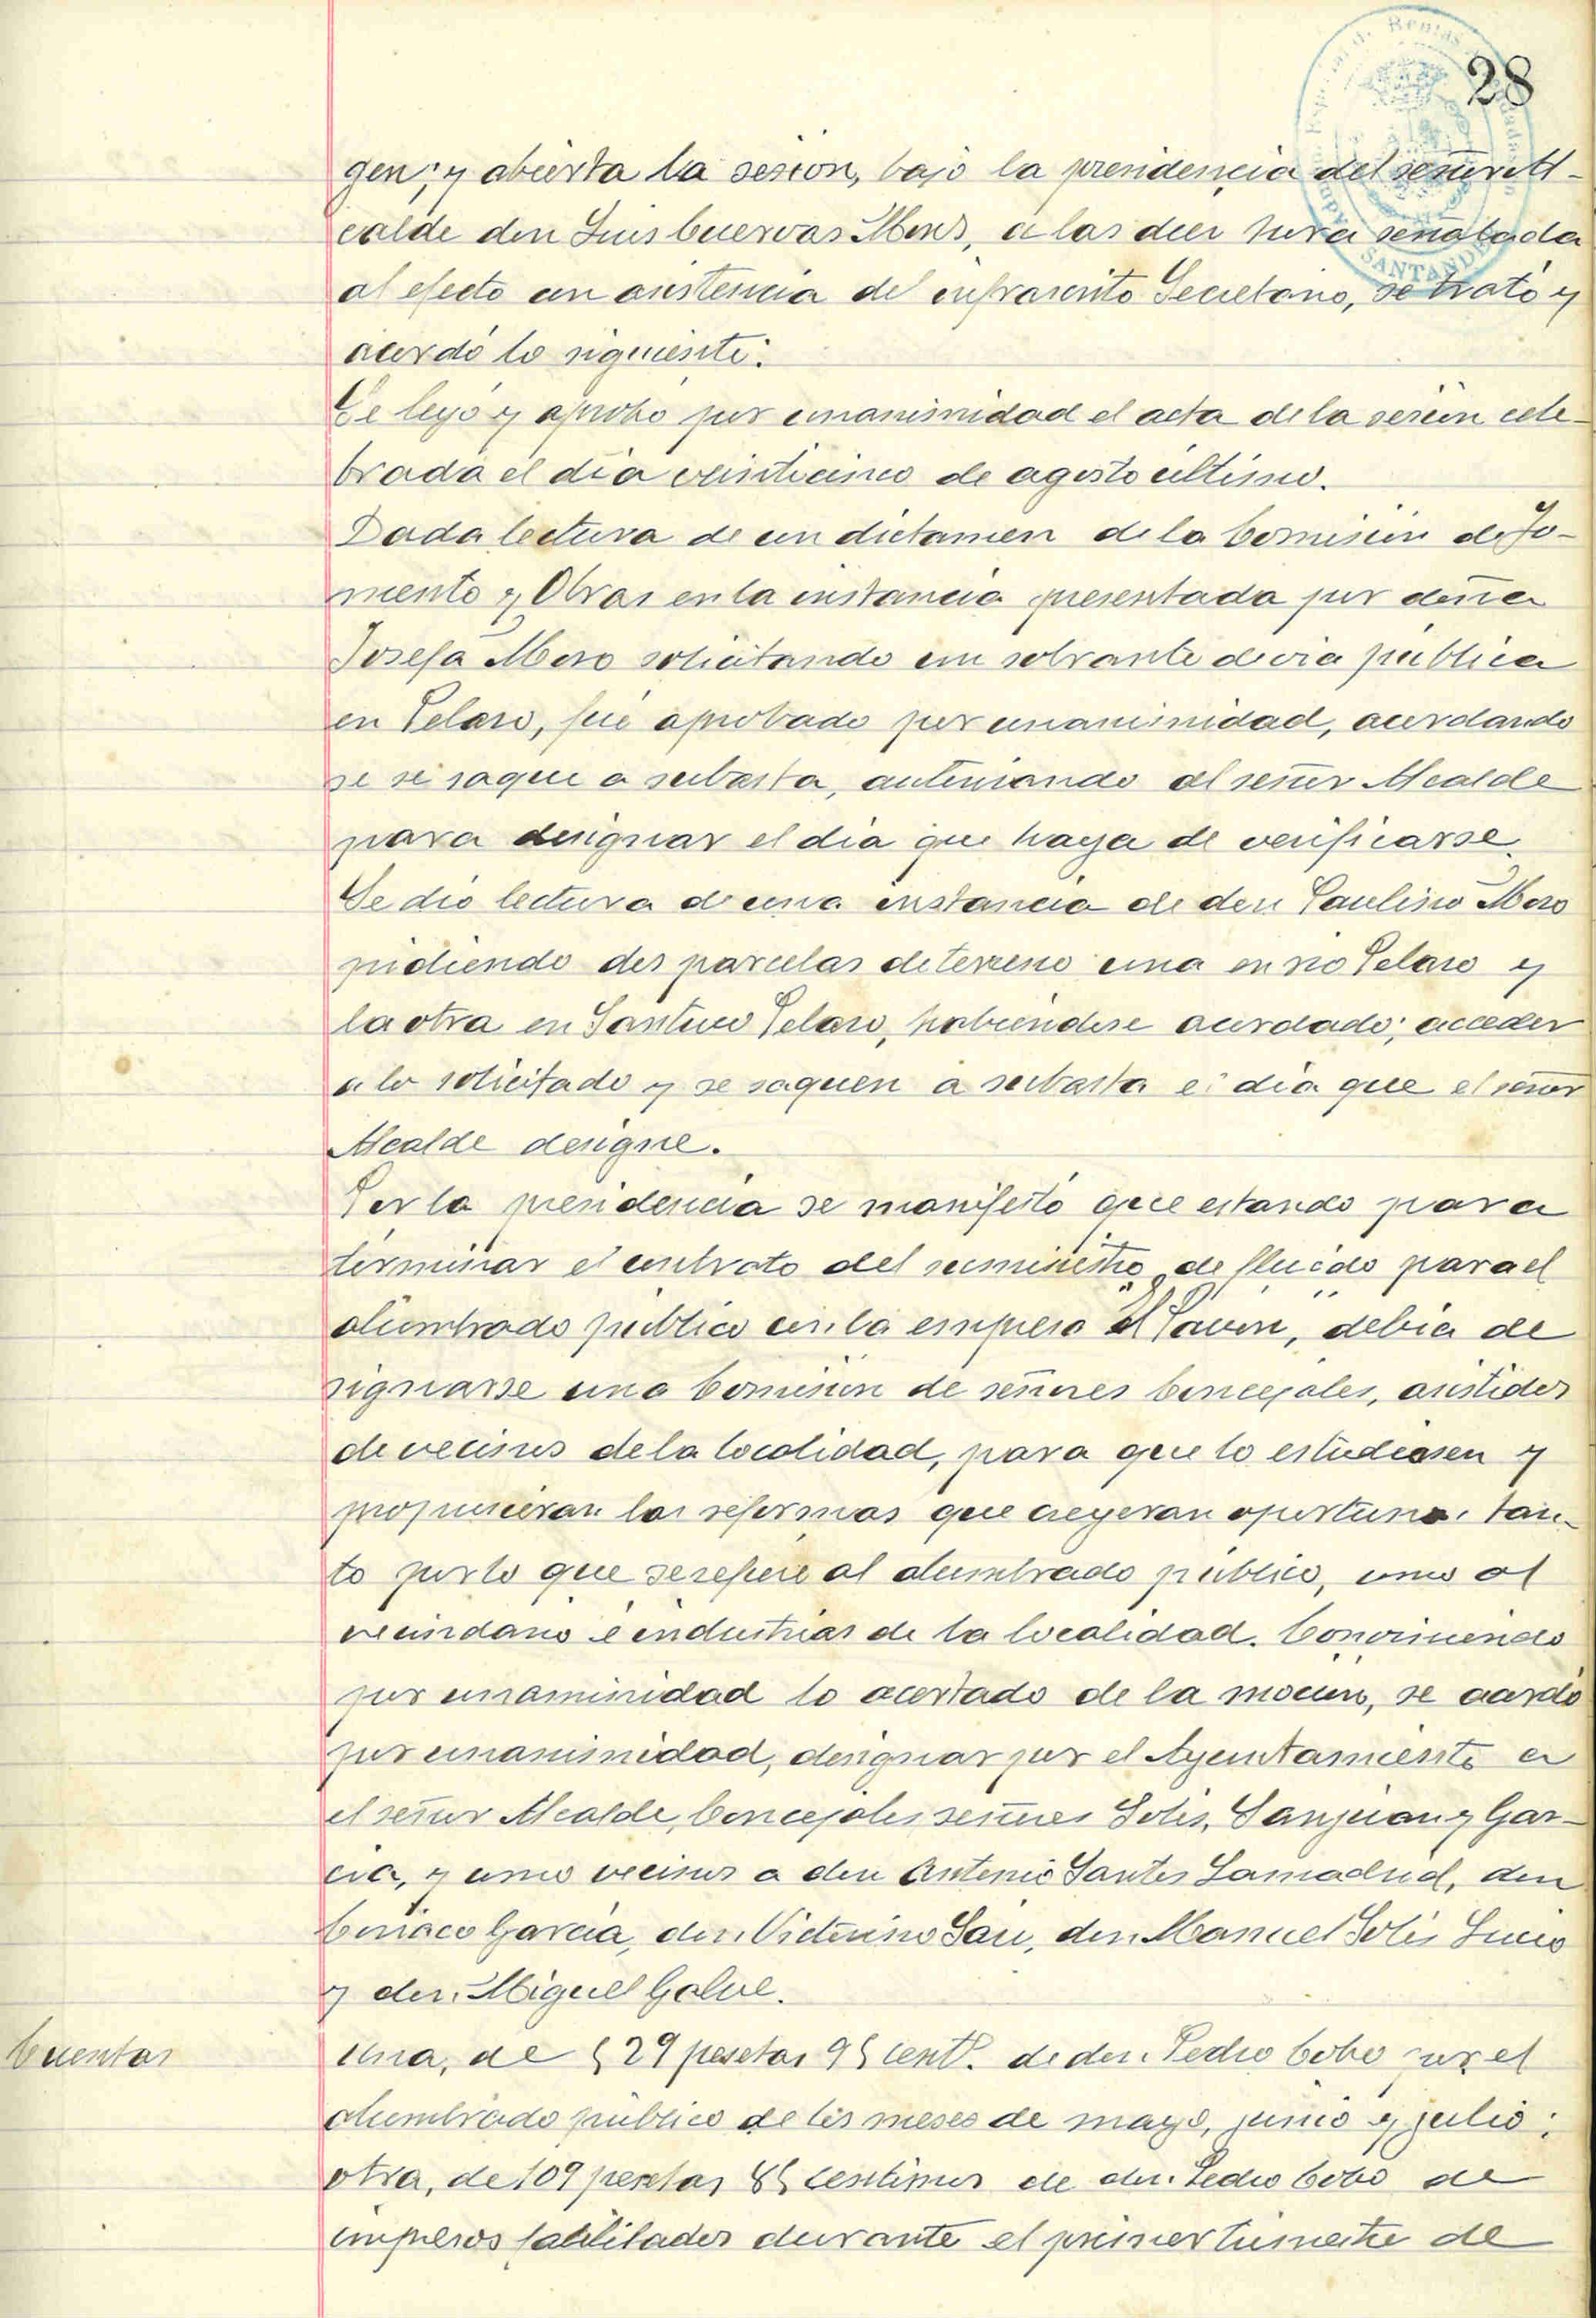 28
gen; y abierta la sesión, bajo la presidencia del señor Al-
calde don Luis Cuervas Mons, a las diez hora señalada
al efecto con asistencia del infrascrito Secretario, se trató y
acordó lo siguiente:
Se leyó y aprobó por unanimidad el acta de la sesión cele-
brada el día veinticinco de agosto último.
Dada lectura de un dictamen de la Comisión de Fo-
mento y Obras en la instancia presentada por doña
Josefa Moro solicitando un sobrante de via pública
en Pelayo, fué aprobado por unanimidad, acordando
se se saque a subasta, autorizando al señor Alcalde
para designar el día que haya de verificarse.
Se dio lectura de una instancia de don Paulino Moro
pidiendo dos parcelas de terreno una en rio Pelayo y
la otra en Pelayo, habiendose acordado; acceder
a lo solicitado y se saquen a subasta el día que el señor
Alcalde designe.
Por la presidencia se manifestó que estando para
terminar el contrato del suministro de fluido para el
alumbrado público con la empresa el, debia de
signarse una Comisión de señores Concejales, asistidos
de vecinos de la localidad, para que lo estudiasen y
propusieran las reformas que creyeran oportunas tan-
to por lo que se refiere al alumbrado público, como al
vecindario e industrias de la localidad. Conviniendo
por unanimidad lo acertado de la moción, se acordó
por unanimidad, designar por el Ayuntamiento a
el señor Alcalde, Concejales señores Solis, Sanjuan y Gar-
cia, y como vecinos a don Antonio Santos Lamadrid, don
Ciriaco Garcia, don Victorino San, don Manuel Solis Lucio
y don Miguel Galve.
Cuentas
Una, de 529 pesetas 95 centº. de don Pedro Cobo por el
alumbrado público de los meses de mayo, junio y julio;
otra, de 109 pesetas 85 centimos de don Pedro Cobo de
impresos facilitados durante el primer trimestre de
SANTANDER